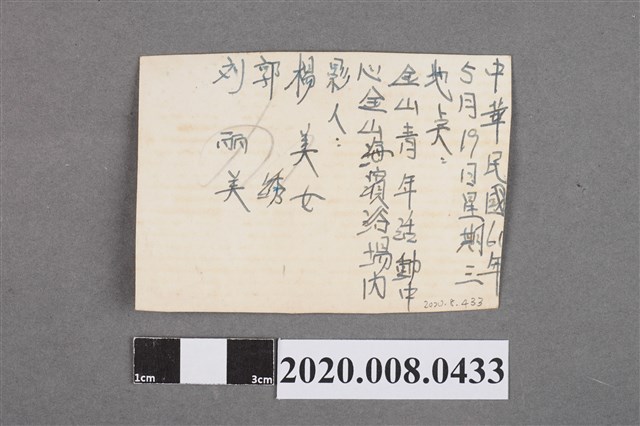 中華民國61年
5月19日星期三
地奌:
金山青年活動中
心金山海濱浴場內
影人:
楊美女
郭綉
刘丽美
2020.8.433
1cm 3cm
2020.008.0433